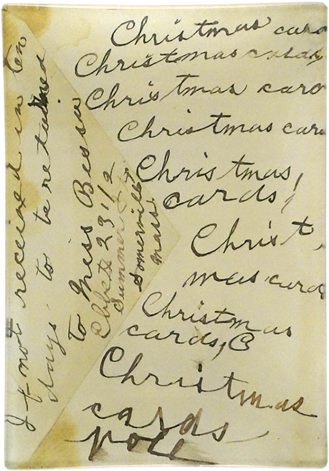 Christmas card
Christmas cards
Christmas card
Christmas card
Christmas
cards!
Christ
mas cards
Christmas
cards, C
Christmas
cards
If not received in ten
days. to be retained
to Miss
23 1/2
Summer
Somerville
Mass